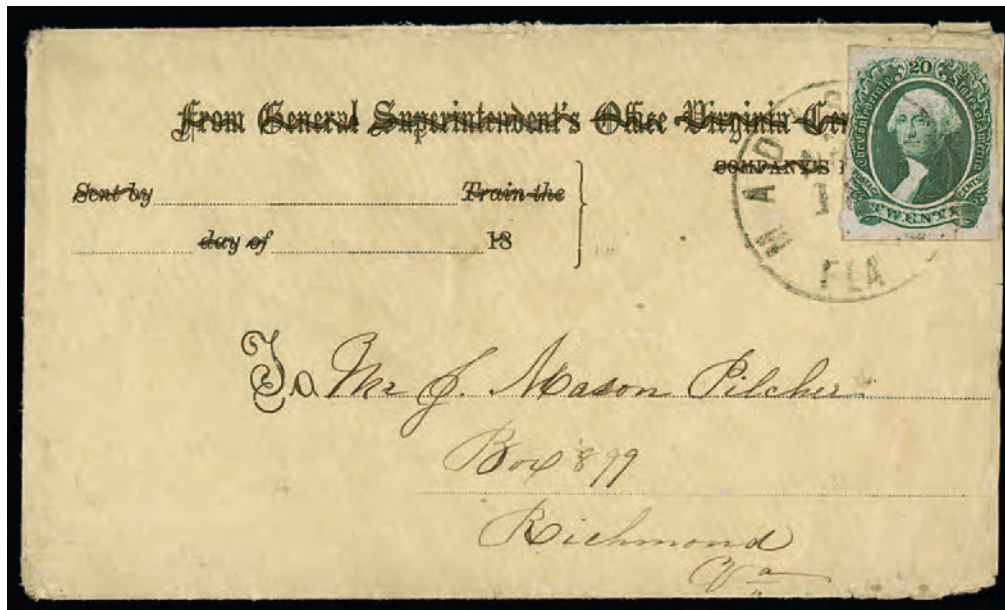 From General Superintendent's Office Virginia
COMPANY'S
Sent by Train the
day of 18
20
The Confederate States of America
POSTAGE CENTS
TWENTY
FLA
To Mr J. Mason Pilcher
Box 899
Richmond
Va